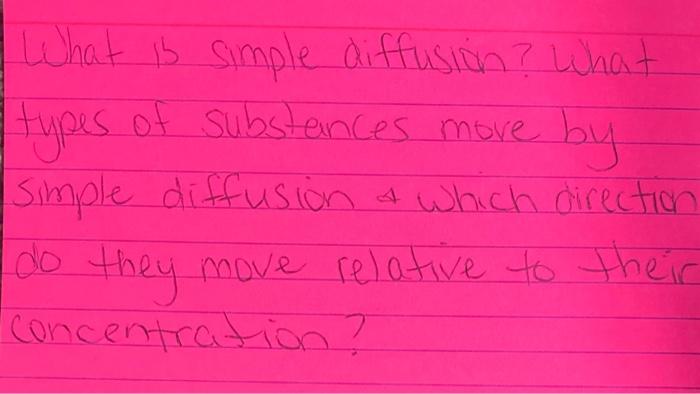 What is simple diffusion? What
types of substances move by
simple diffusion & which direction
do they move relative to their
concentration?